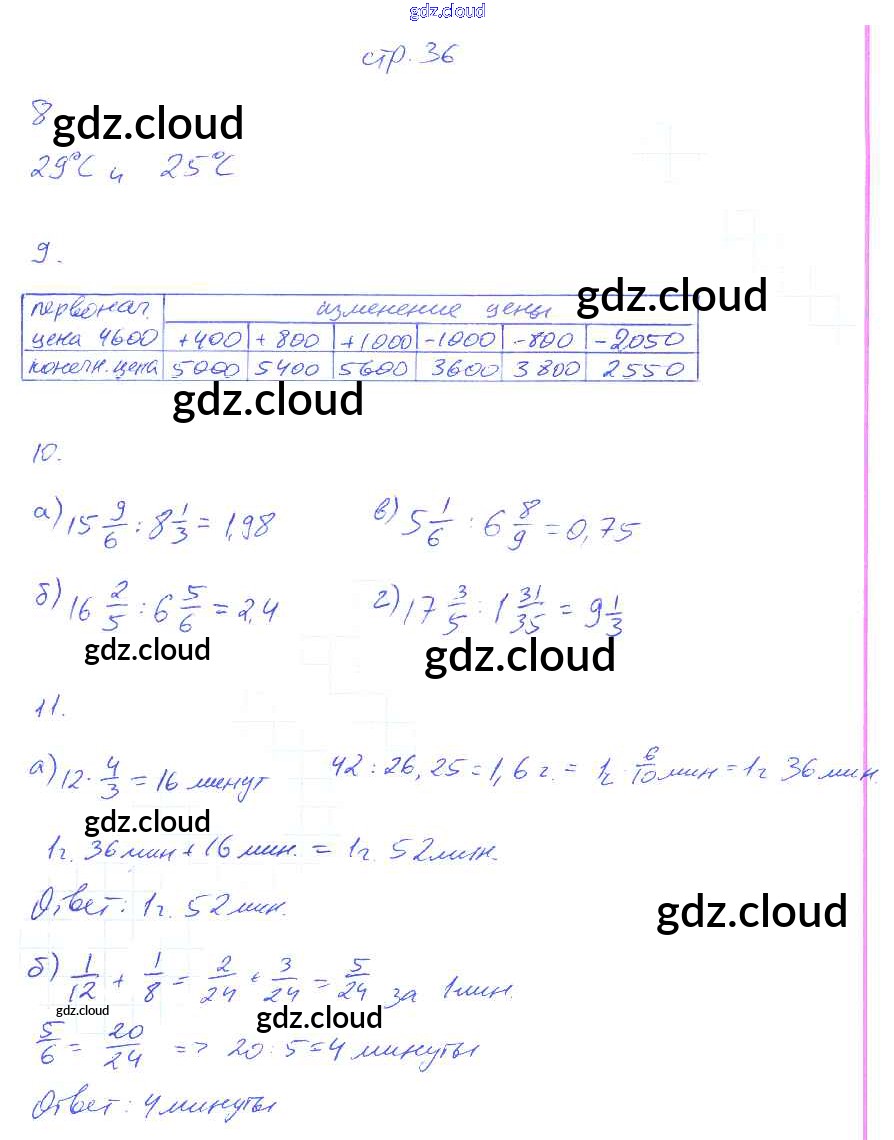 gdz.cloud
стр. 36
8 gdz.cloud
29°C и 25°C
9.
gdz.cloud
первонач. изменение цены
цена 4600 +400 +800 +1000 -1000 -800 -2050
конечн. цена 5000 5400 5600 3600 3800 2550
gdz.cloud
10.
а) 15 9/6 : 8 1/3 = 1,98 в) 5 1/6 : 6 8/9 = 0,75
б) 16 2/5 : 6 5/6 = 2,4 г) 17 3/5 : 1 31/35 = 9 1/3
gdz.cloud gdz.cloud
11.
а) 12 · 4/3 = 16 минут 42 : 26,25 = 1,6 г. = 1г 6/10 мин = 1г 36 мин.
gdz.cloud
1г. 36 мин + 16 мин. = 1г. 52 мин.
Ответ: 1г. 52 мин.
gdz.cloud
б) 1/12 + 1/8 = 2/24 + 3/24 = 5/24 за 1 мин.
gdz.cloud gdz.cloud
5/6 = 20/24 => 20 : 5 = 4 минуты
Ответ: 4 минуты